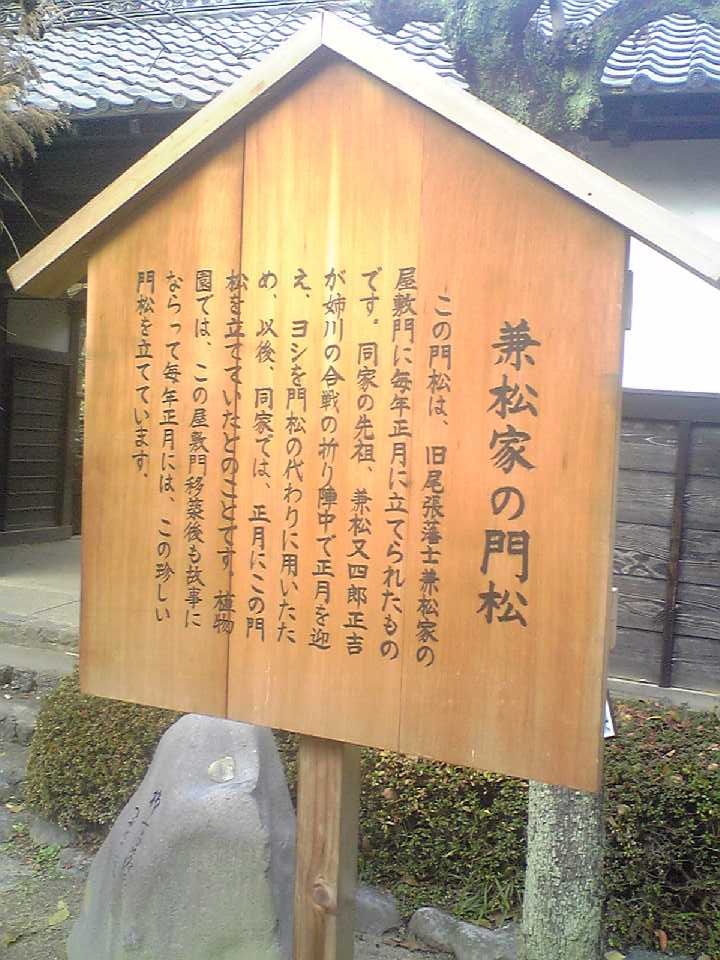 兼松家の門松
この門松は、旧尾張藩士兼松家の
屋敷門に毎年正月に立てられたもの
です。同家の先祖、兼松又四郎正吉
が姉川の合戦の折り陣中で正月を迎
え、ヨシを門松の代わりに用いたた
め、以後、同家では、正月にこの門
松を立てていたとのことです。植物
園では、この屋敷門移築後も故事に
ならって毎年正月には、この珍しい
門松を立てています。